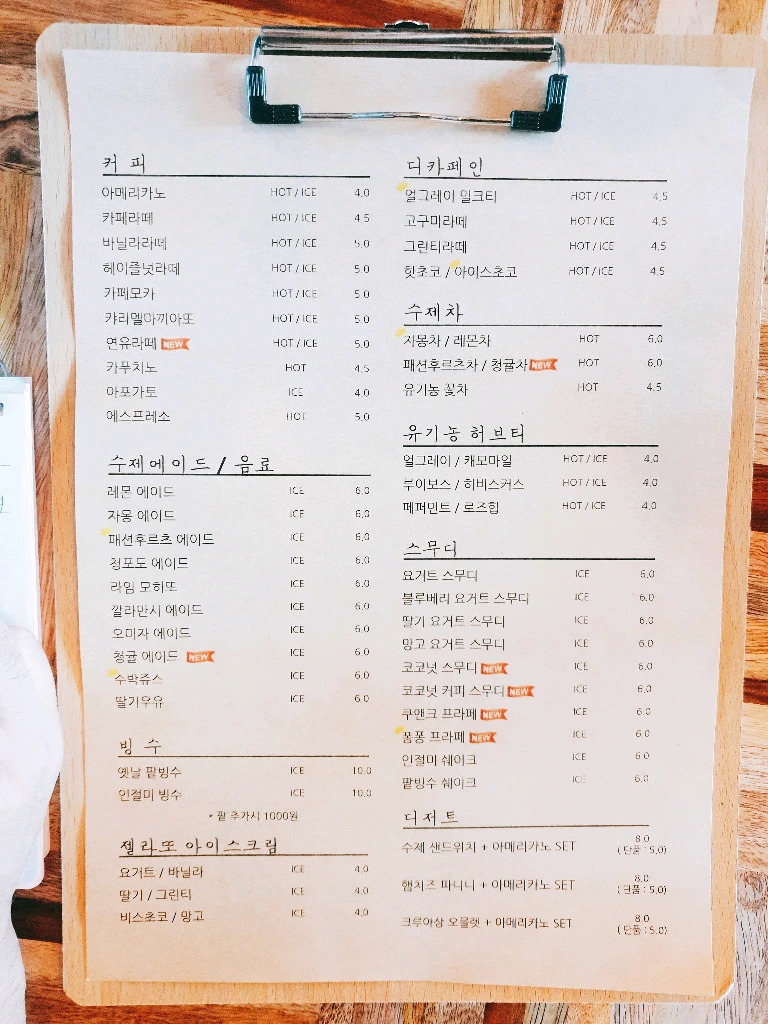 커 피
아메리카노 HOT / ICE 4.0
카페라떼 HOT / ICE 4.5
바닐라라떼 HOT / ICE 5.0
헤이즐넛라떼 HOT / ICE 5.0
카페모카 HOT / ICE 5.0
캬라멜마끼아또 HOT / ICE 5.0
연유라떼 NEW HOT / ICE 5.0
카푸치노 HOT 4.5
아포가토 ICE 4.0
에스프레소 HOT 5.0
수제에이드 / 음료
레몬 에이드 ICE 6.0
자몽 에이드 ICE 6.0
패션후르츠 에이드 ICE 6.0
청포도 에이드 ICE 6.0
라임 모히또 ICE 6.0
깔라만시 에이드 ICE 6.0
오미자 에이드 ICE 6.0
청귤 에이드 NEW ICE 6.0
수박쥬스 ICE 6.0
딸기우유 ICE 6.0
빙 수
옛날 팥빙수 ICE 10.0
인절미 빙수 ICE 10.0
* 팥 추가시 1000원
젤라또 아이스크림
요거트 / 바닐라 ICE 4.0
딸기 / 그린티 ICE 4.0
비스초코 / 망고 ICE 4.0
디카페인
얼그레이 밀크티 HOT / ICE 4.5
고구마라떼 HOT / ICE 4.5
그린티라떼 HOT / ICE 4.5
핫초코 / 아이스초코 HOT / ICE 4.5
수제차
자몽차 / 레몬차 HOT 6.0
패션후르츠차 / 청귤차 NEW HOT 6.0
유기농 꽃차 HOT 4.5
유기농 허브티
얼그레이 / 캐모마일 HOT / ICE 4.0
루이보스 / 히비스커스 HOT / ICE 4.0
페퍼민트 / 로즈힙 HOT / ICE 4.0
스무디
요거트 스무디 ICE 6.0
블루베리 요거트 스무디 ICE 6.0
딸기 요거트 스무디 ICE 6.0
망고 요거트 스무디 ICE 6.0
코코넛 스무디 NEW ICE 6.0
코코넛 커피 스무디 NEW ICE 6.0
쿠앤크 프라페 NEW ICE 6.0
퐁퐁 프라페 NEW ICE 6.0
인절미 쉐이크 ICE 6.0
팥빙수 쉐이크 ICE 6.0
디저트
수제 샌드위치 + 아메리카노 SET 8.0
( 단품 : 5.0)
햄치즈 파니니 + 아메리카노 SET 8.0
( 단품 : 5.0)
크루아상 오믈렛 + 아메리카노 SET 8.0
( 단품 : 5.0)